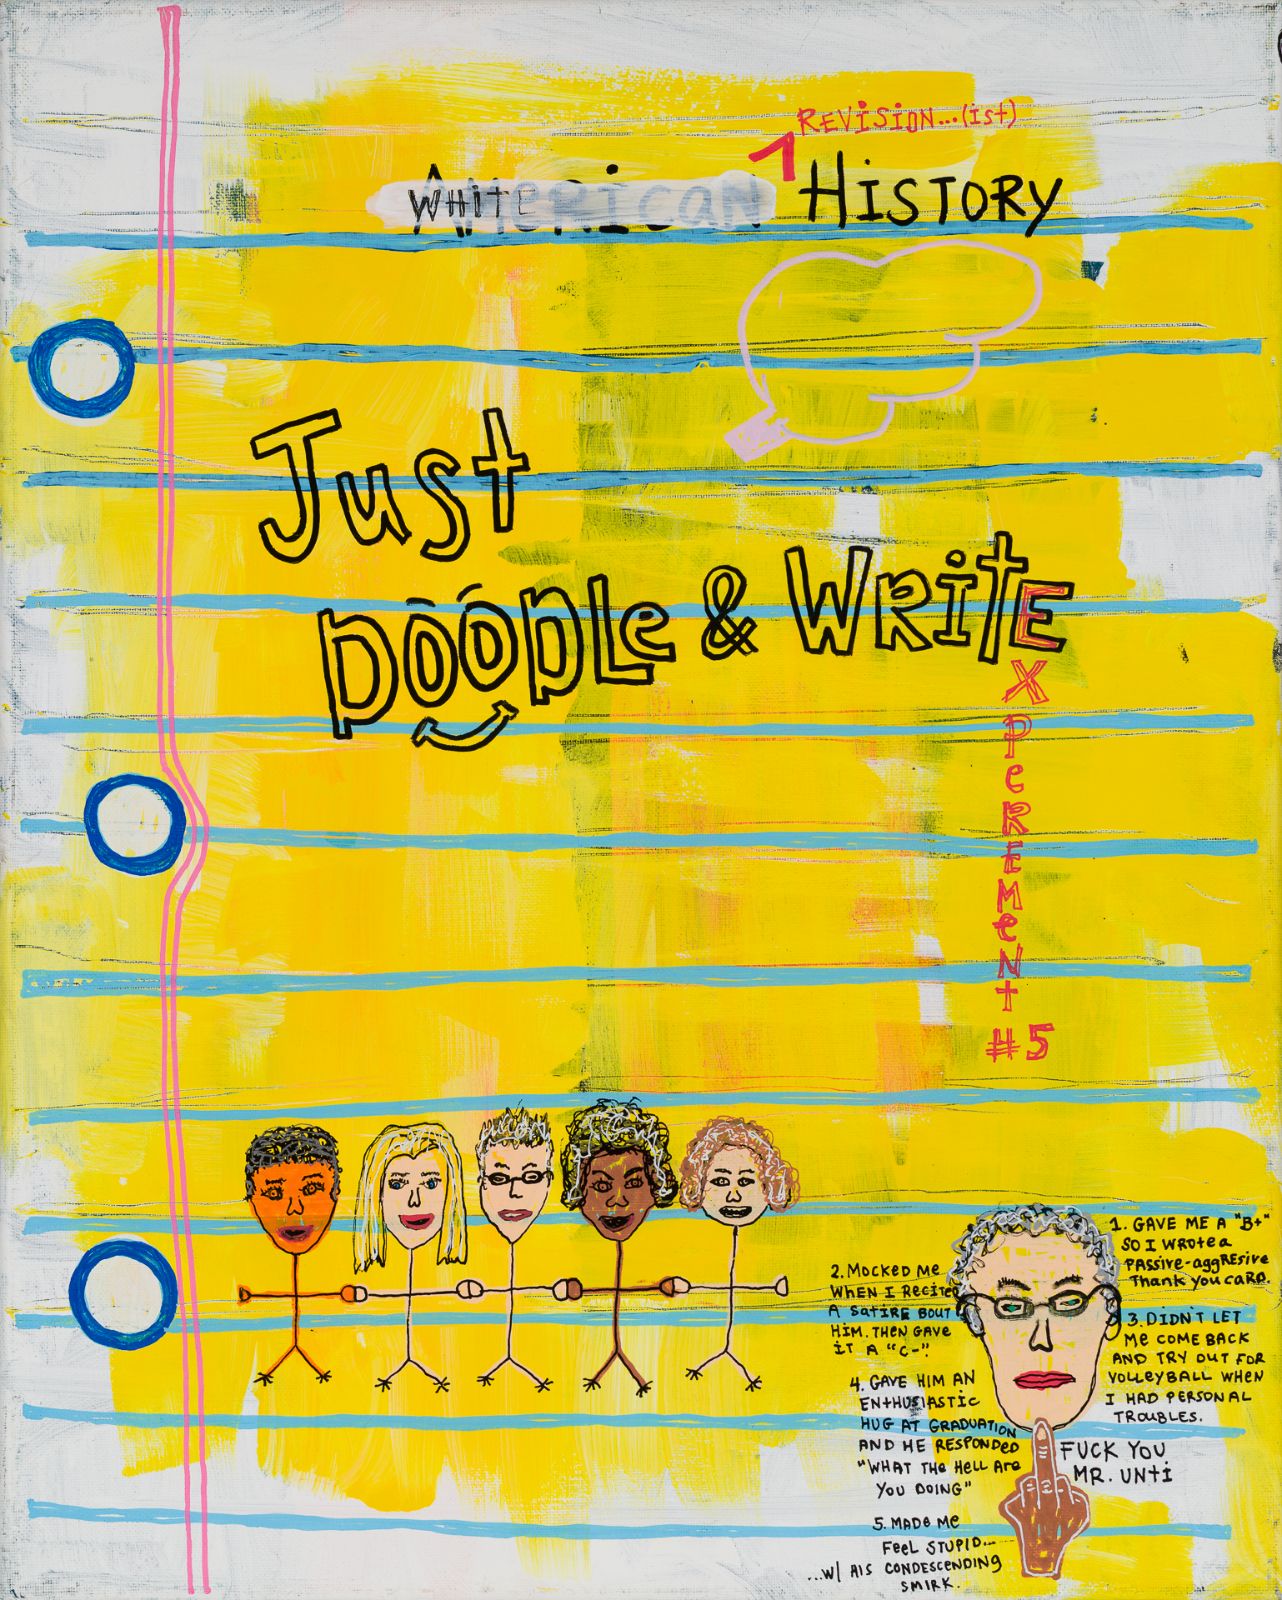 REVISION...(ist)
WHITE AMERICAN HISTORY
Just
poople & WRITE
EXPEREMENT
#5
1. GAVE ME A "B+"
SO I WROTE A
PASSIVE-AGGRESIVE
THANK YOU CARD.
2. MOCKED ME
WHEN I RECITED
A SATIRE BOUT
HIM. THEN GAVE
IT A "C-".
3. DIDN'T LET
ME COME BACK
AND TRY OUT FOR
VOLLEYBALL WHEN
I HAD PERSONAL
TROUBLES.
4. GAVE HIM AN
ENTHUSIASTIC
HUG AT GRADUATION
AND HE RESPONDED
"WHAT THE HELL ARE
YOU DOING"
FUCK YOU
MR. UNTI
5. MADE ME
FEEL STUPID...
...W/ HIS CONDESCENDING
SMIRK.